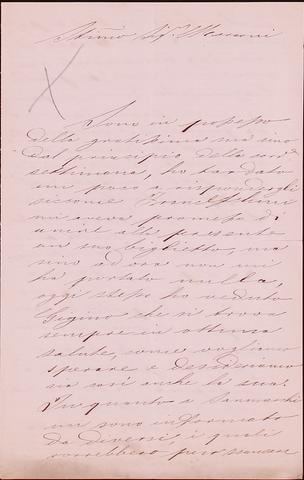 Stimo Sig.
Sono in possesso
della gratissima sua sino
dal principio della scorsa
settimana, ho tardato
un poco a rispondergli
siccome
mi aveva promesso di
unire alla presente
un suo biglietto, ma
sino ad ora non mi
ha portato nulla,
oggi stesso ho veduto
Gigino che si trova
sempre in ottima
salute, come vogliamo
sperare e desideriamo
sia così anche la sua.
In quanto a
mi sono informato
da diversi, i quali
vorrebbero però